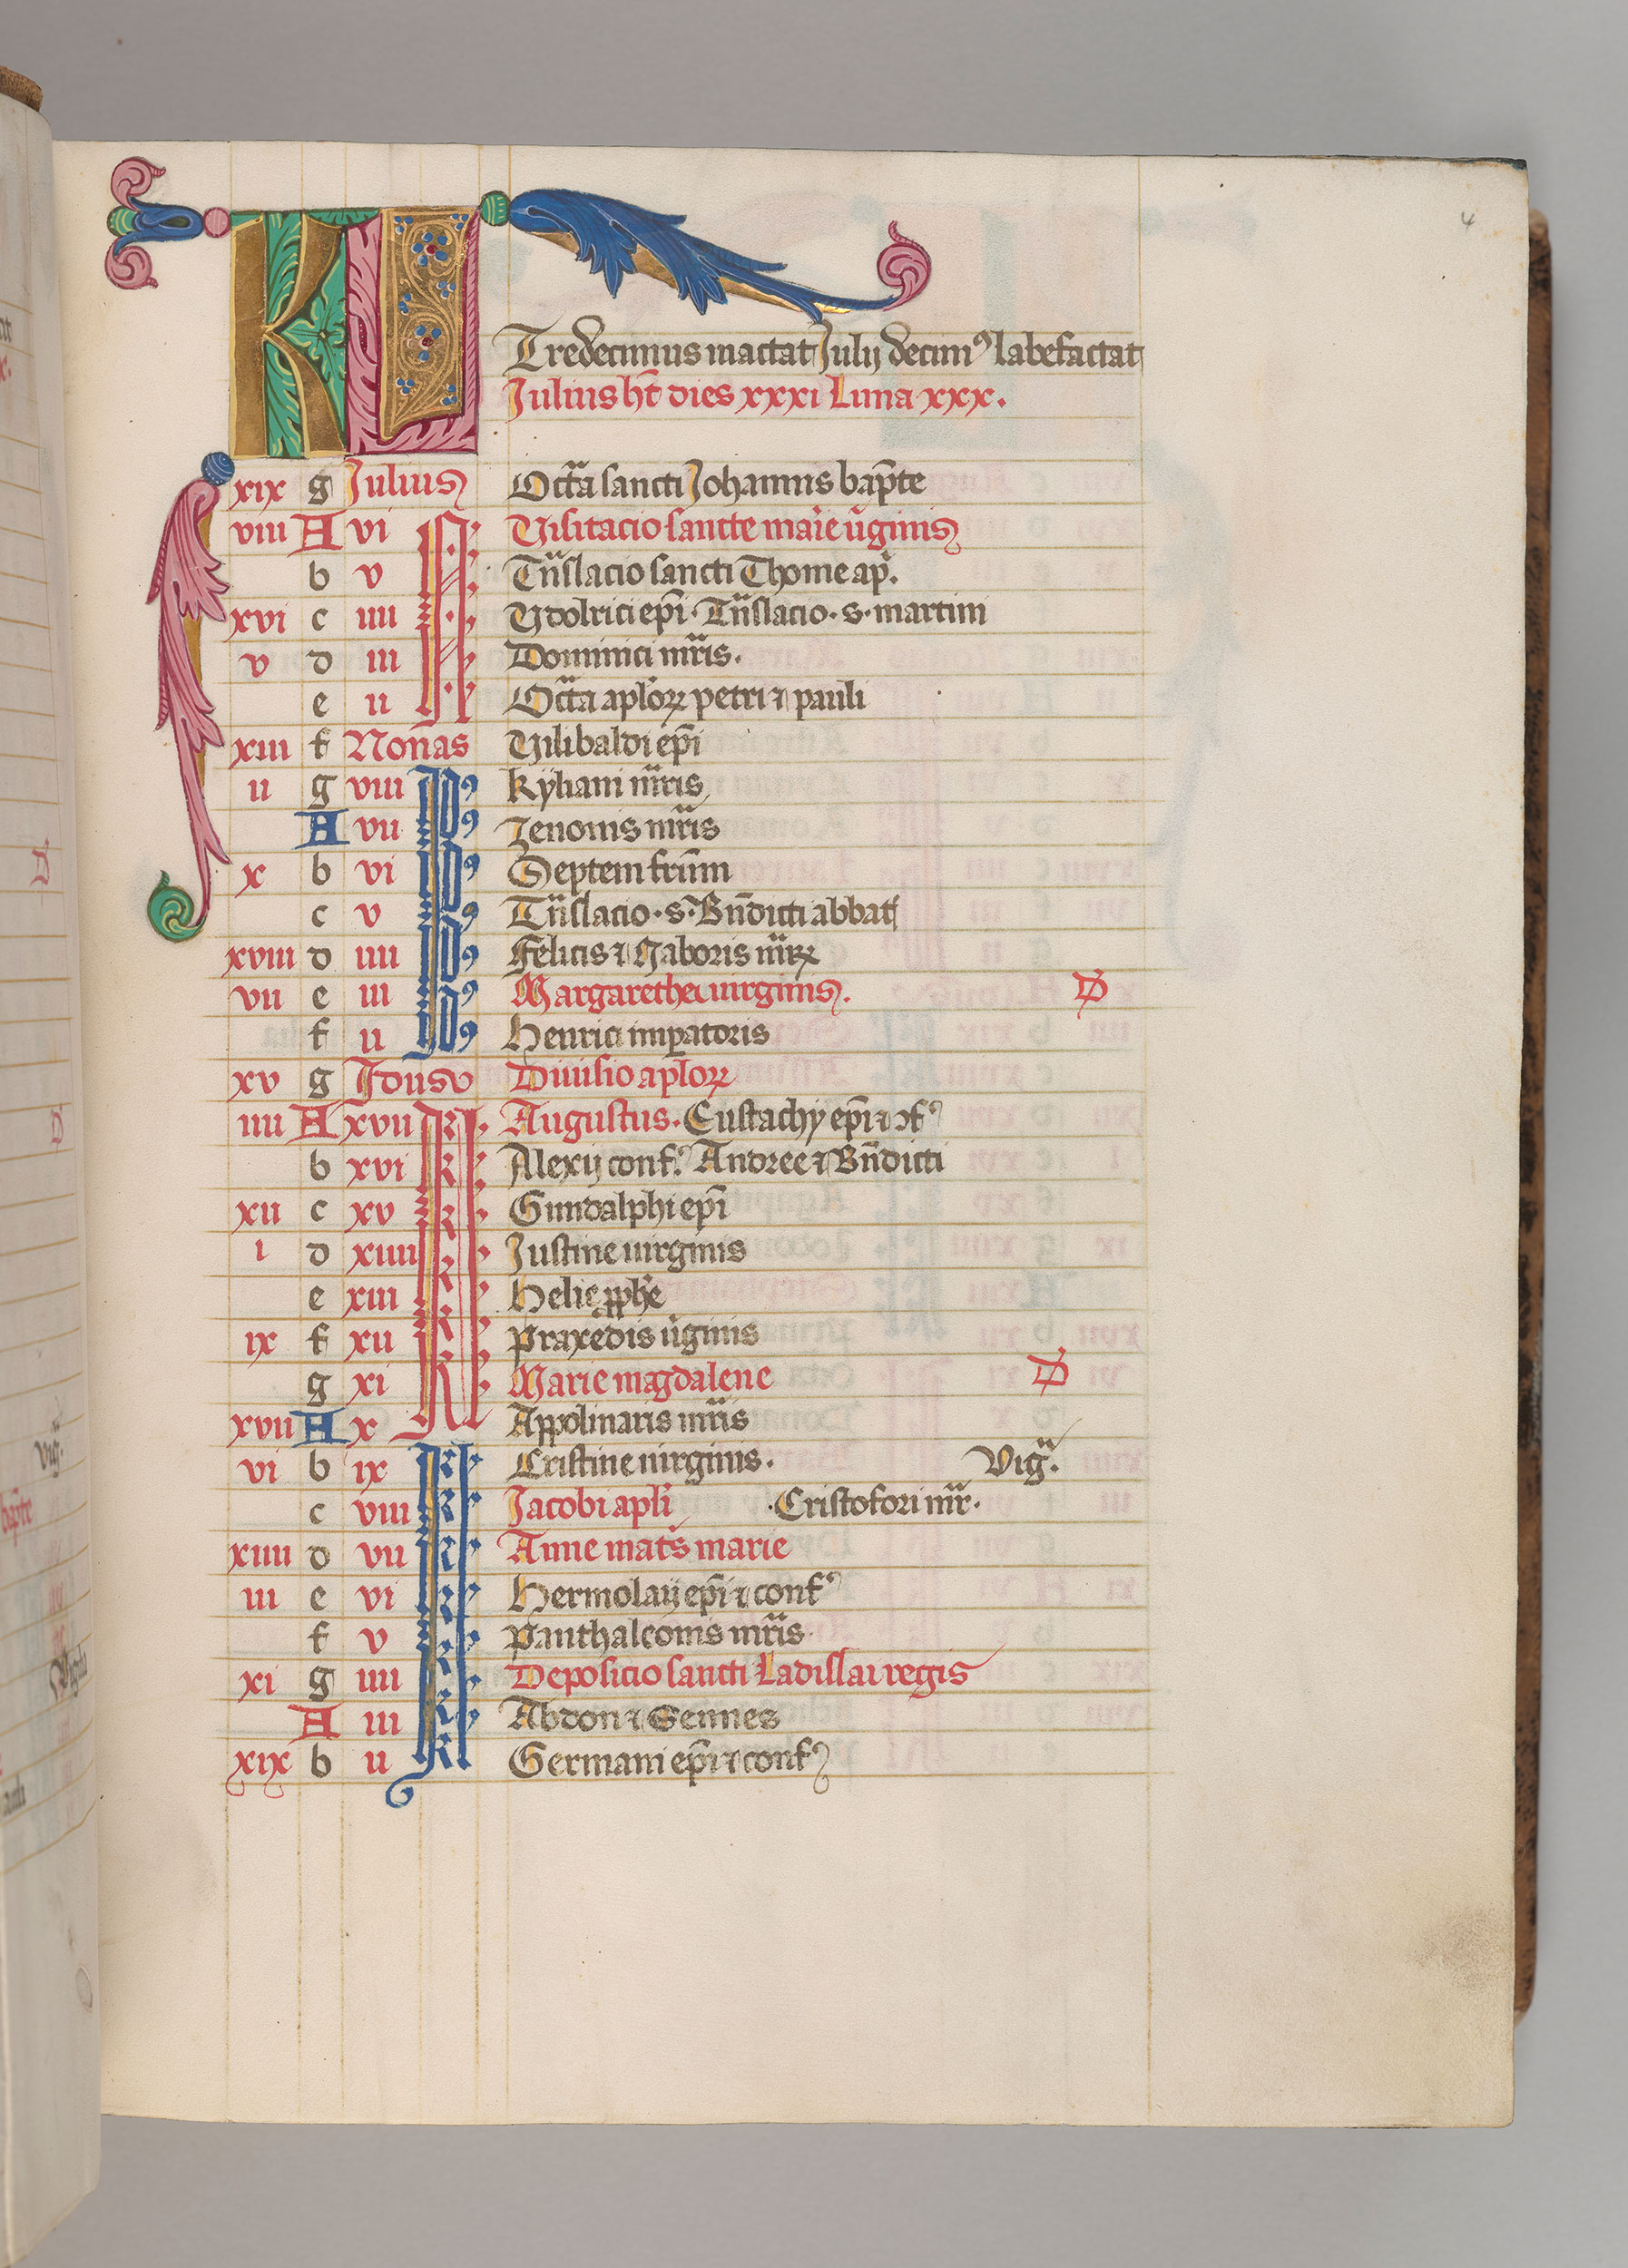 4
KL
Tredecimus mactat Julij decimꝰ labefactat
Julius ht̄ dies xxxi Luna xxx.
xix g Julius Octā sancti Johannis bapt̄e
viii A vi N Visitacio sancte marie v̄ginis
b v Tn̄slacio sancti Thome ap̄.
xvi c iiii Vdolrici ep̄i. Tn̄slacio. s. martini
v d iii Dominici mr̄is.
e ii Octā aplōꝝ petri ⁊ pauli
xiii f Nonas Vilibaldi ep̄i
ii g viii Idꝰ Kyliani mr̄is
A vii Idꝰ Zenonis mr̄is
x b vi Idꝰ Septem frm̄
c v Idꝰ Tn̄slacio. s. Bn̄dicti abbatꝭ
xviii d iiii Idꝰ Felicis ⁊ Naboris mr̄ꝝ
vii e iii Idꝰ Margarethe uirginis. D
f ii Idꝰ Henrici imꝑatoris
xv g Idus Diuisio aplōꝝ
iiii A xvii Kl. Augustus. Eustachy ep̄i ⁊ ꝯf
b xvi Kl Alexij conf. Andree ⁊ Bn̄dicti
xii c xv Kl Gundalphi ep̄i
i d xiiii Kl Justine uirginis
e xiii Kl Helie ꝓphē
ix f xii Kl Praxedis v̄ginis
g xi Kl Marie magdalene D
xvii A x Kl Appolinaris mr̄is
vi b ix Kl Cristine uirginis. Vigᵃ.
c viii Kl Jacobi apl̄i .Cristofori mr̄.
xiiii d vii Kl Anne mat̄s marie
iii e vi Kl Hermolaij ep̄i ⁊ conf
f v Kl Panthaleonis mr̄is
xi g iiii Kl Deposicio sancti Ladislai regis
A iii Kl Abdon ⁊ Sennes
xix b ii Kl Germani ep̄i ⁊ conf